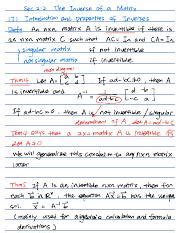 Sec 2.2 The Inverse of a Matrix
(1) Introduction and properties of Inverses
Def: An n×n matrix A is invertible if there is
an n×n matrix C such that AC = I and CA = I.
singular matrix if not invertible
nonsingular matrix if invertible
Thm 4 Let A = [a b; c d]. If ad-bc ≠ 0, then A
is invertible and A⁻¹ = 1/(ad-bc) [d -b; -c a]
If ad-bc = 0, then A is not invertible (or singular)
determinant of A det(A)
Thm 4 says that a 2×2 matrix A is invertible iff
det A ≠ 0
We will generalize this condition to any n×n matrix
later
Thm 5 If A is an invertible n×n matrix, then for
each b in Rⁿ, the equation Ax = b has the unique
sol. x = A⁻¹b.
(mainly used for algebraic calculation and formula
derivations)